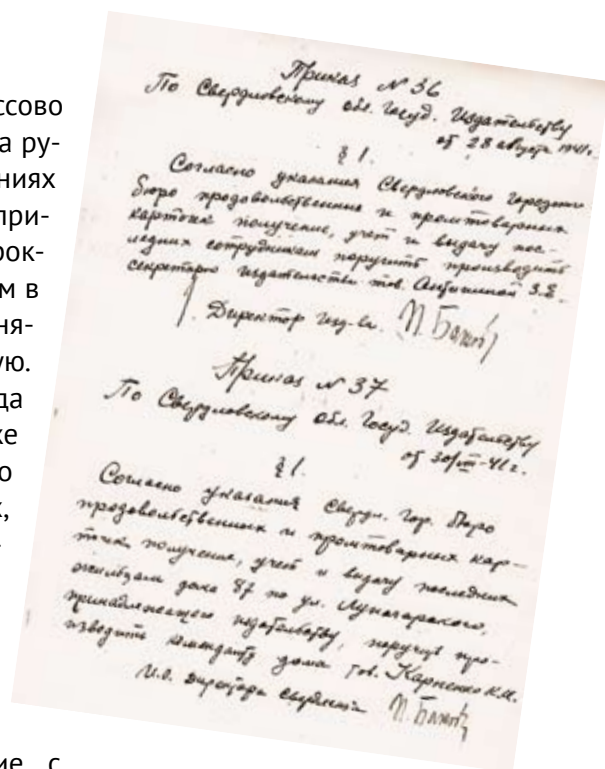 ссово
а ру-
ниях
при-
рок-
м в
ня-
ую.
да
ке
о
к,
-
ие с
Приказ N 36
По Свердловскому обл. Госуд. Издательству
от 28 августа 1941г.
§ 1.
Согласно указания Свердловского
бюро продовольственных и промтоварных
карточек получение, учет и выдачу пос-
ледних сотрудникам поручить производить
секретарю издательства тов. З.Е.
Директор изд-ва. П. Бажов
Приказ N 37
По Свердловскому обл. Госуд. Издательству
от 30/VIII-41г.
§ 1.
Согласно указания Свердл. гор. бюро
продовольственных и промтоварных кар-
точек получение, учет и выдачу последних
жильцам дома 87 по ул. Луначарского,
принадлежащего издательству, поручить про-
изводить коменданту дома тов. Карпенко К.М.
И.О. директора П. Бажов